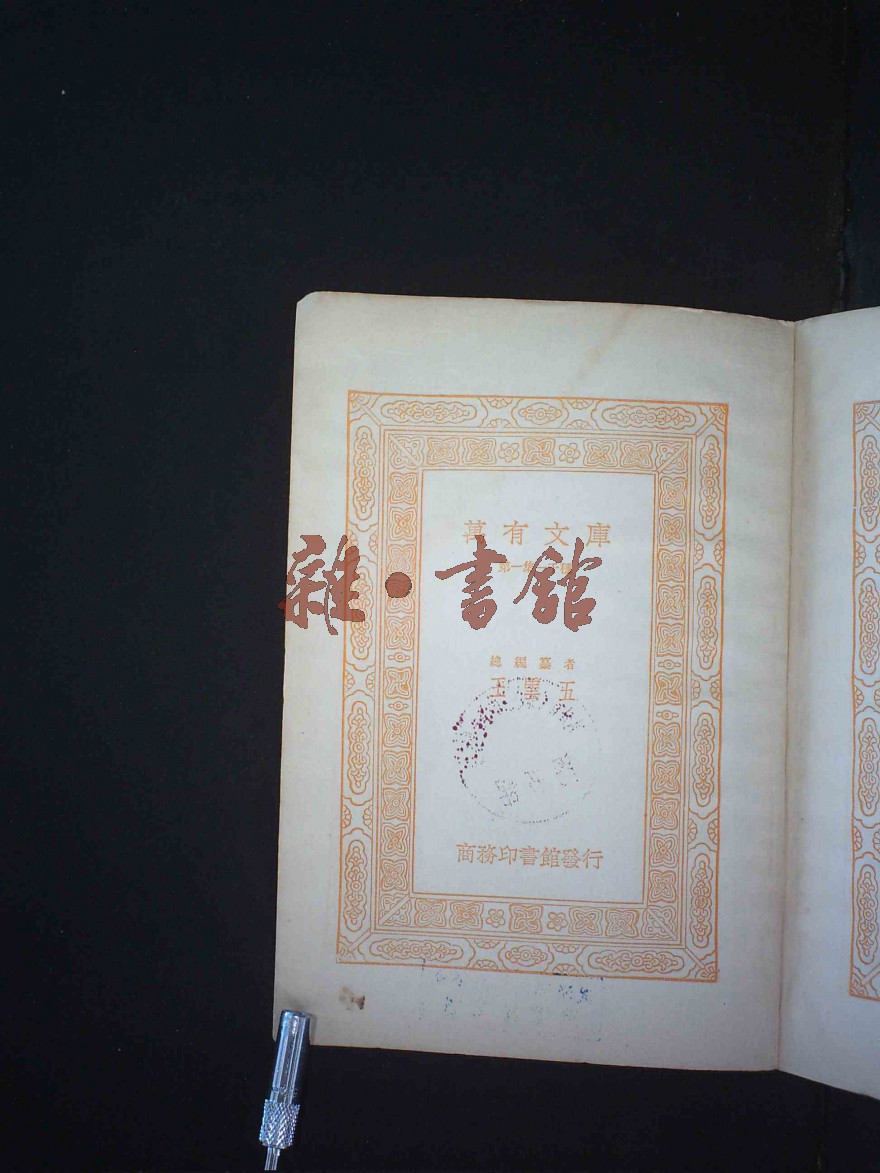 萬有文庫
第一集
雜·書館
總編纂者
王雲五
商務印書館發行